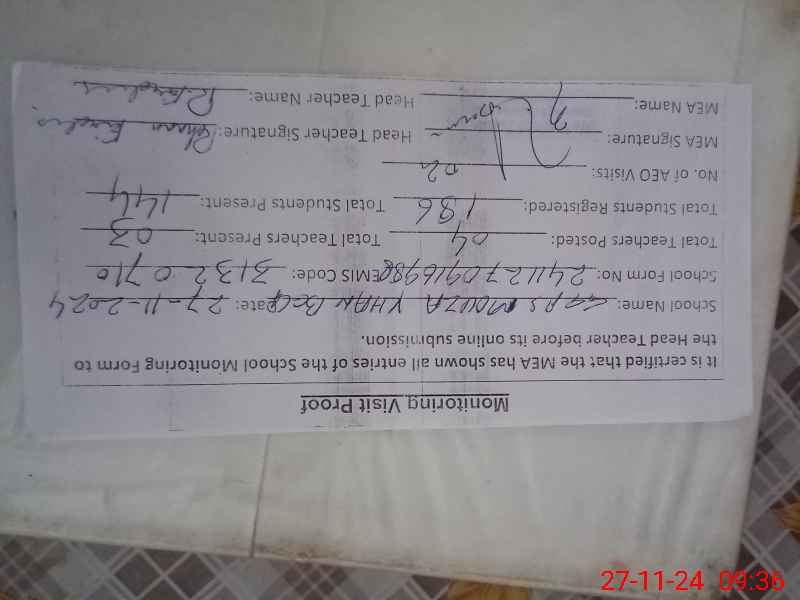 Monitoring Visit Proof
It is certified that the MEA has shown all entries of the School Monitoring Form to
the Head Teacher before its online submission.
School Name: MOUZA Date: 27-11-2024
School Form No: EMIS Code: 31320710
Total Teachers Posted: 04 Total Teachers Present: 03
Total Students Registered: 186 Total Students Present: 144
No. of AEO Visits: 02
MEA Signature: Head Teacher Signature:
MEA Name: Head Teacher Name:
27-11-24 09:36